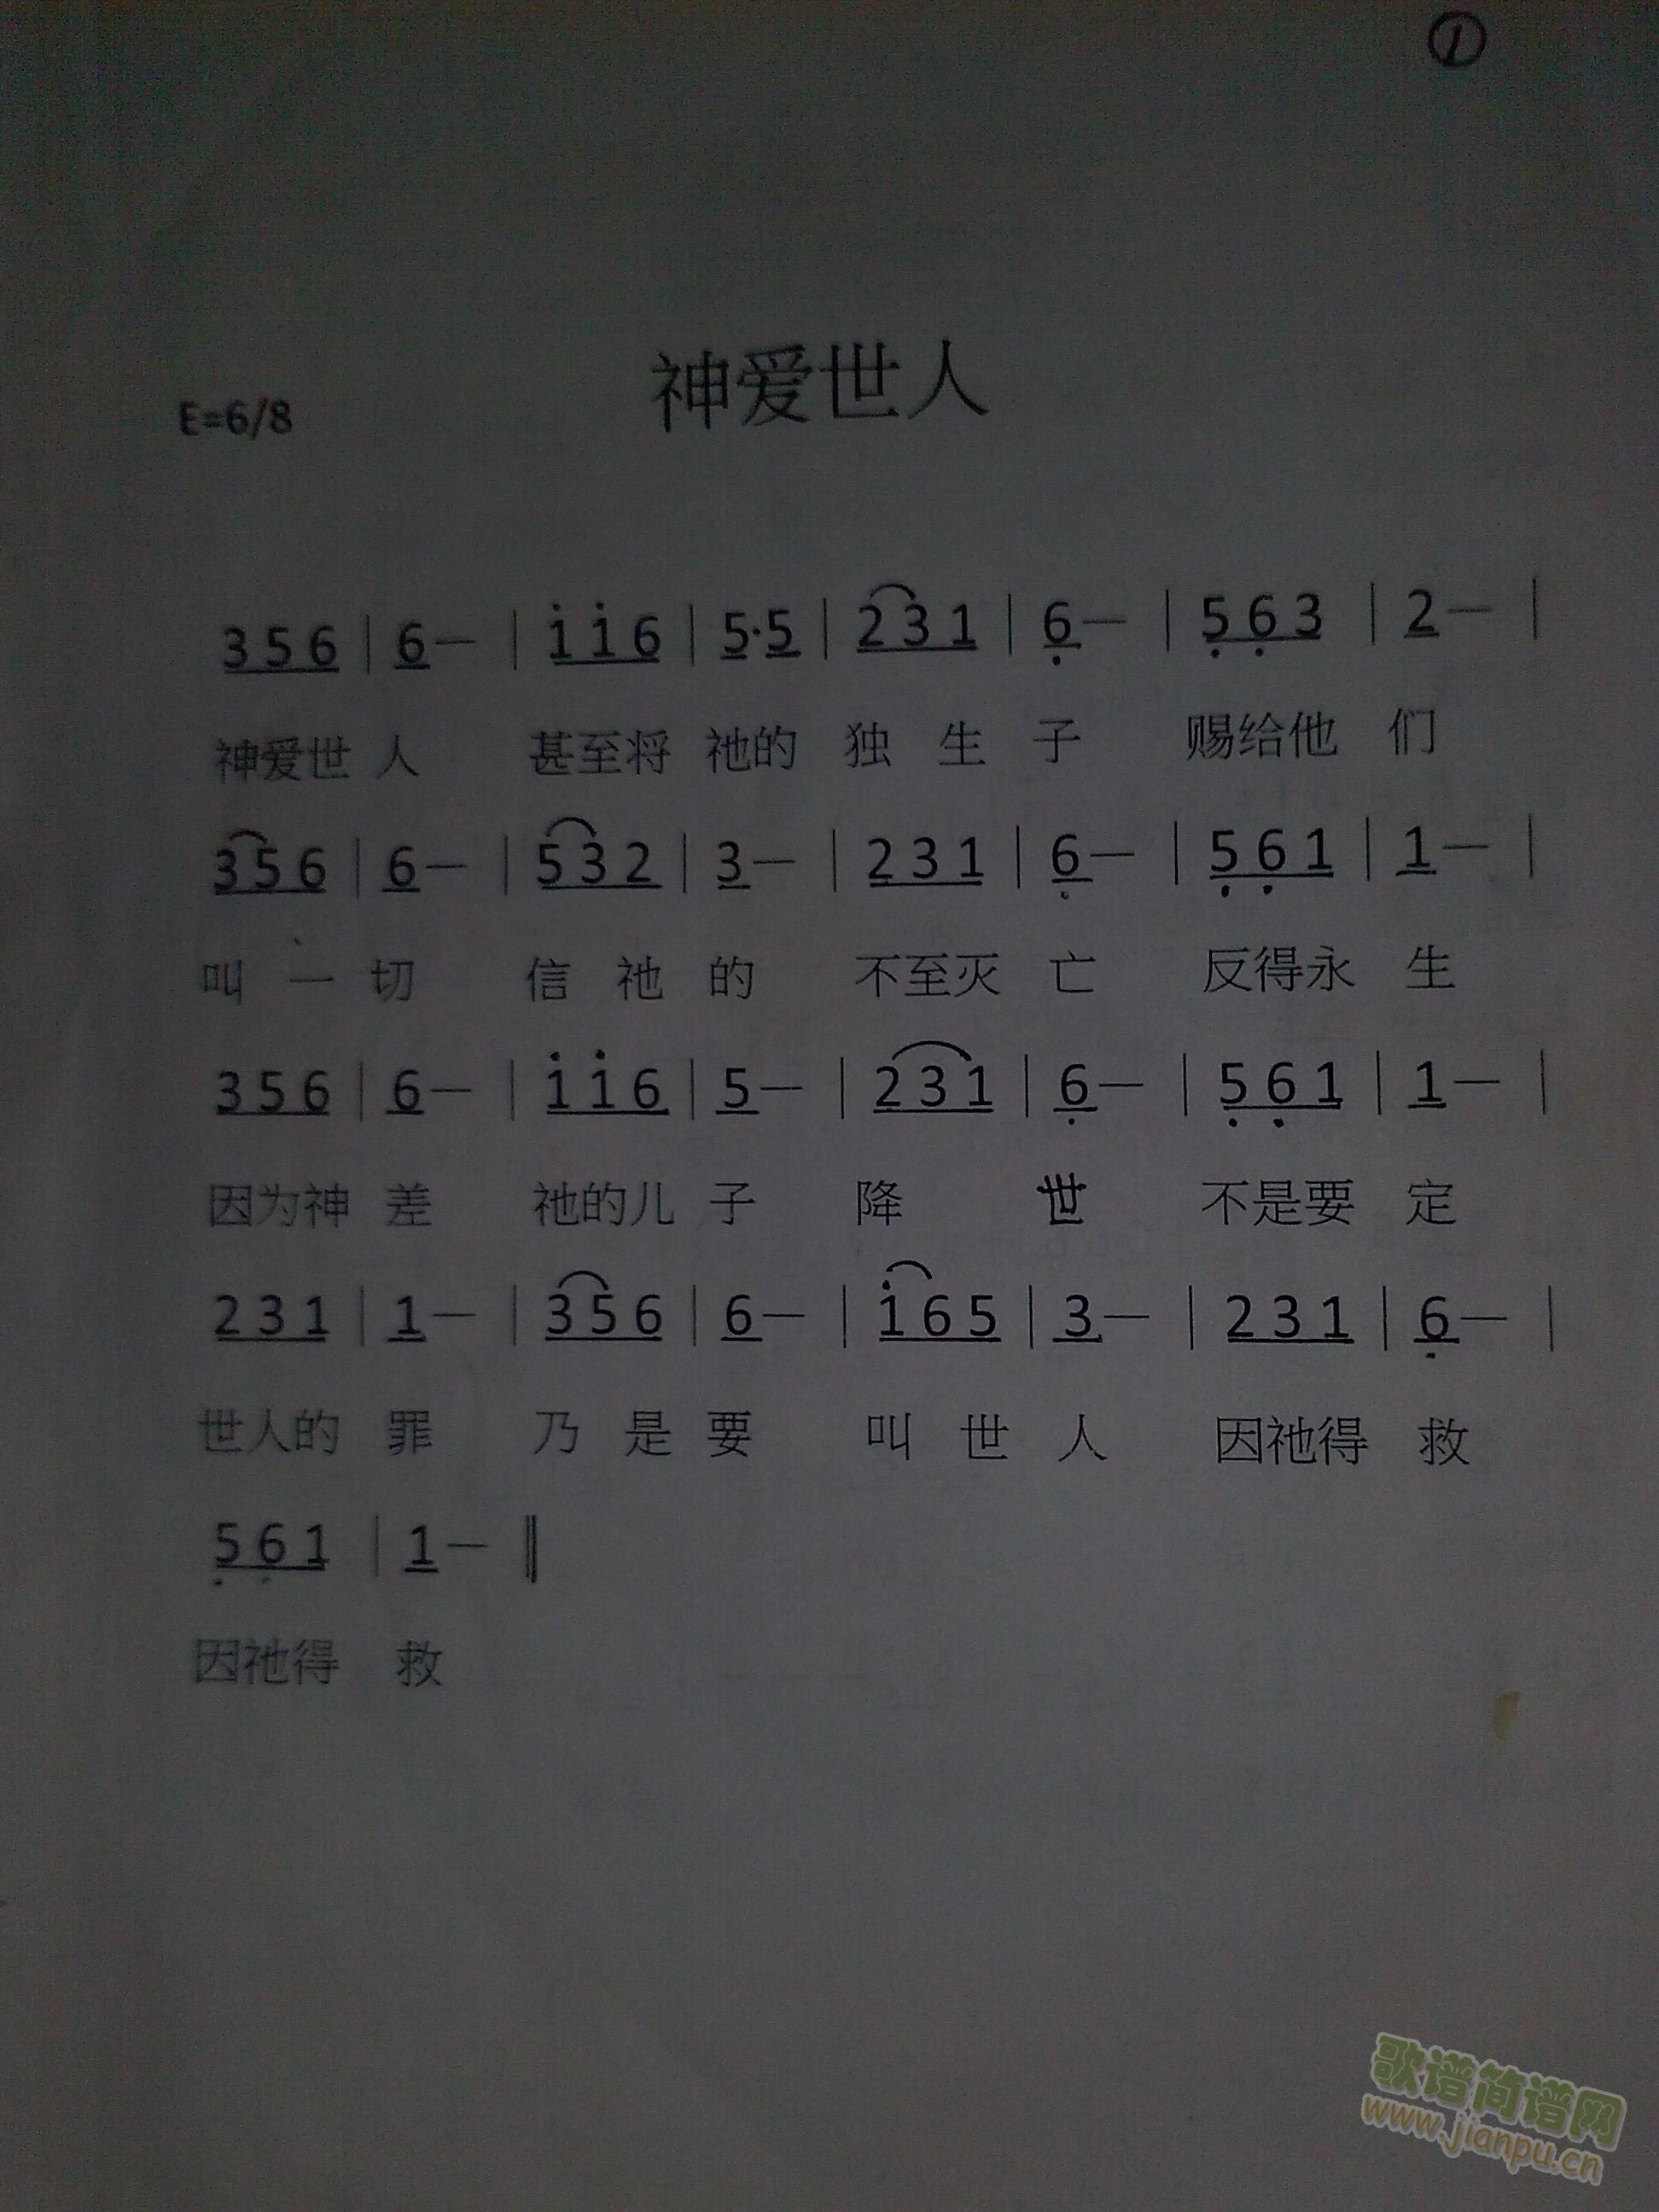 ①
神爱世人
E=6/8
3 5 6 | 6 — | i i 6 | 5· 5 | 2 3 1 | 6 — | 5 6 3 | 2 — |
神爱世 人 甚至将 祂的 独 生 子 赐给他 们
3 5 6 | 6 — | 5 3 2 | 3 — | 2 3 1 | 6 — | 5 6 1 | 1 — |
叫 一 切 信 祂 的 不至灭 亡 反得永 生
3 5 6 | 6 — | i i 6 | 5 — | 2 3 1 | 6 — | 5 6 1 | 1 — |
因为神 差 祂的儿 子 降 世 不是要 定
2 3 1 | 1 — | 3 5 6 | 6 — | i 6 5 | 3 — | 2 3 1 | 6 — |
世人的 罪 乃 是 要 叫 世 人 因祂得 救
5 6 1 | 1 — ‖
因祂得 救
歌谱简谱网
www.jianpu.cn